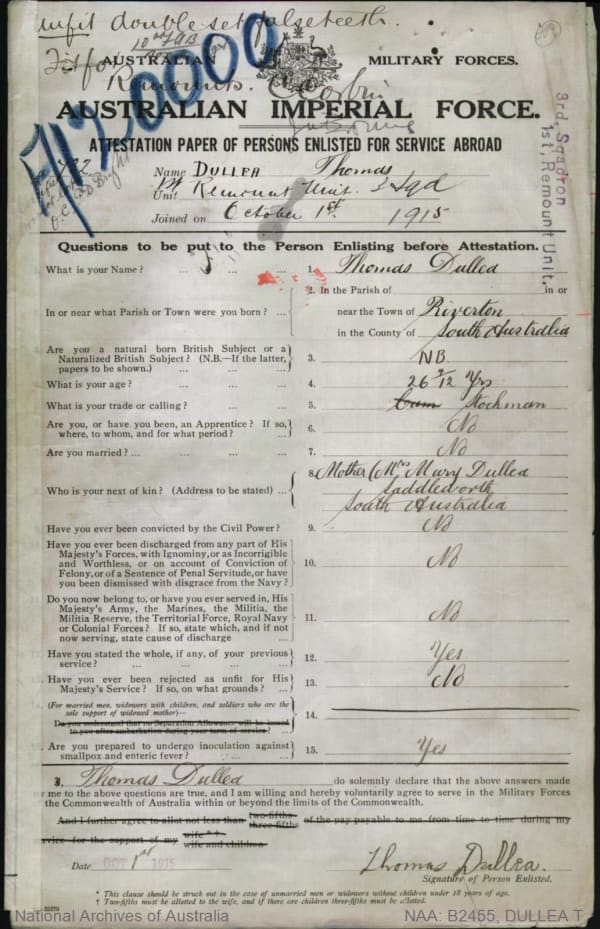 unfit double set false teeth.
Fit for
Remounts.
AUSTRALIAN MILITARY FORCES.
AUSTRALIAN IMPERIAL FORCE.
ATTESTATION PAPER OF PERSONS ENLISTED FOR SERVICE ABROAD
3rd, Sqadron
1st, Remount Unit,
Name DULLEA Thomas
Unit 1st Remount Unit 3 Sqd
Joined on October 1st 1915
Questions to be put to the Person Enlisting before Attestation.
What is your Name? ... ... ... 1. Thomas Dullea
2. In the Parish of in or
In or near what Parish or Town were you born? ... near the Town of Riverton
in the County of South Australia
Are you a natural born British Subject or a
Naturalized British Subject? (N.B.—If the latter,
papers to be shown.) ... ... ... 3. NB
What is your age? ... ... ... 4. 26 2/12 Yrs
What is your trade or calling? ... ... 5. Stockman
Are you, or have you been, an Apprentice? If so,
where, to whom, and for what period? ... 6. No
Are you married? ... ... ... ... 7. No
8. Mother (Mrs Mary Dullea
Who is your next of kin? (Address to be stated) ... Saddleworth
South Australia
Have you ever been convicted by the Civil Power? 9. No
Have you ever been discharged from any part of His
Majesty's Forces, with Ignominy, or as Incorrigible
and Worthless, or on account of Conviction of
Felony, or of a Sentence of Penal Servitude, or have
you been dismissed with disgrace from the Navy? 10. No
Do you now belong to, or have you ever served in, His
Majesty's Army, the Marines, the Militia, the
Militia Reserve, the Territorial Force, Royal Navy
or Colonial Forces? If so, state which, and if not
now serving, state cause of discharge ... 11. No
Have you stated the whole, if any, of your previous
service? ... ... ... ... 12. Yes
Have you ever been rejected as unfit for His
Majesty's Service? If so, on what grounds? ... 13. No
(For married men, widowers with children, and soldiers who are the
sole support of widowed mother)—
Do you understand that no Separation Allowance will be issued
to you after embarkation during your term of service? 14.
Are you prepared to undergo inoculation against
smallpox and enteric fever? ... ... 15. Yes
I, Thomas Dullea do solemnly declare that the above answers made
me to the above questions are true, and I am willing and hereby voluntarily agree to serve in the Military Forces
the Commonwealth of Australia within or beyond the limits of the Commonwealth.
And I further agree to allot not less than two-fifths three-fifths of the pay payable to me from time to time during my
service for the support of my wife * † wife and children
Date OCT 1st 1915 Thomas Dullea.
Signature of Person Enlisted.
* This clause should be struck out in the case of unmarried men or widowers without children under 18 years of age.
† Two-fifths must be allotted to the wife, and if there are children three-fifths must be allotted.
National Archives of Australia NAA: B2455, DULLEA T